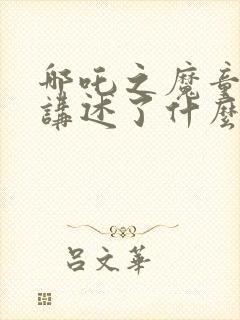 哪吒之魔童
講述了什麼
呂文華